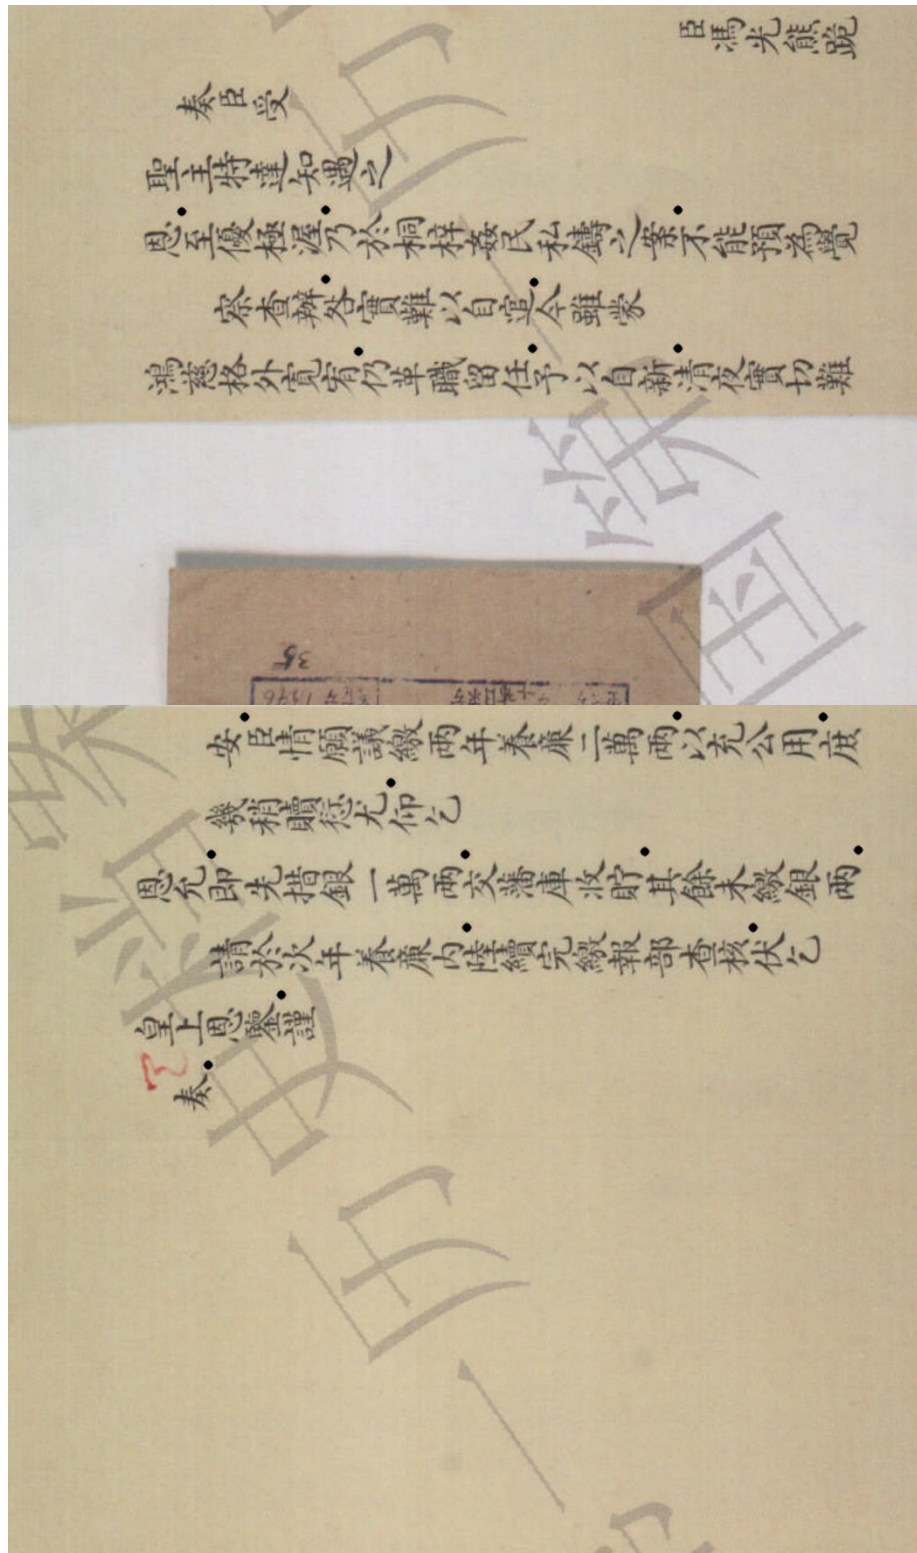 臣馮光熊跪
奏臣受
聖主特達知遇之
恩至優極渥乃於桐梓姦民私鑄之案不能預為覺
察查辦咎實難以自逭今雖蒙
鴻慈格外寬宥仍革職留任予以自新清夜實切難
35
安臣情願議繳兩年養廉二萬兩以充公用庶
幾稍贖愆尤仰乞
恩允即先措銀一萬兩交藩庫收貯其餘未繳銀兩
請於次年養廉內陸續完繳報部查核伏乞
皇上恩鑒謹
奏